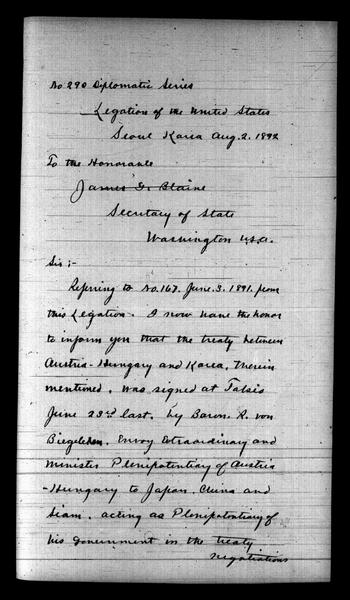 No 290 Diplomatic Series
Legation of the United States
Seoul Korea Aug. 2. 1892
To the Honorable
James G. Blaine
Secretary of State
Washington U.S.A.
Sir:-
Refering to No. 167. June. 3. 1891. from
this Legation. I now have the honor
to inform you that the treaty between
Austria-Hungary and Korea, therein
mentioned, was signed at Tokio
June 23rd last, by Baron. R. von
Biegeleben. Envoy Extraordinary and
Minister Plenipotentiary of Austria
-Hungary to Japan, China and
Siam. acting as Plenipotentiary of
his government in the treaty
negotiations